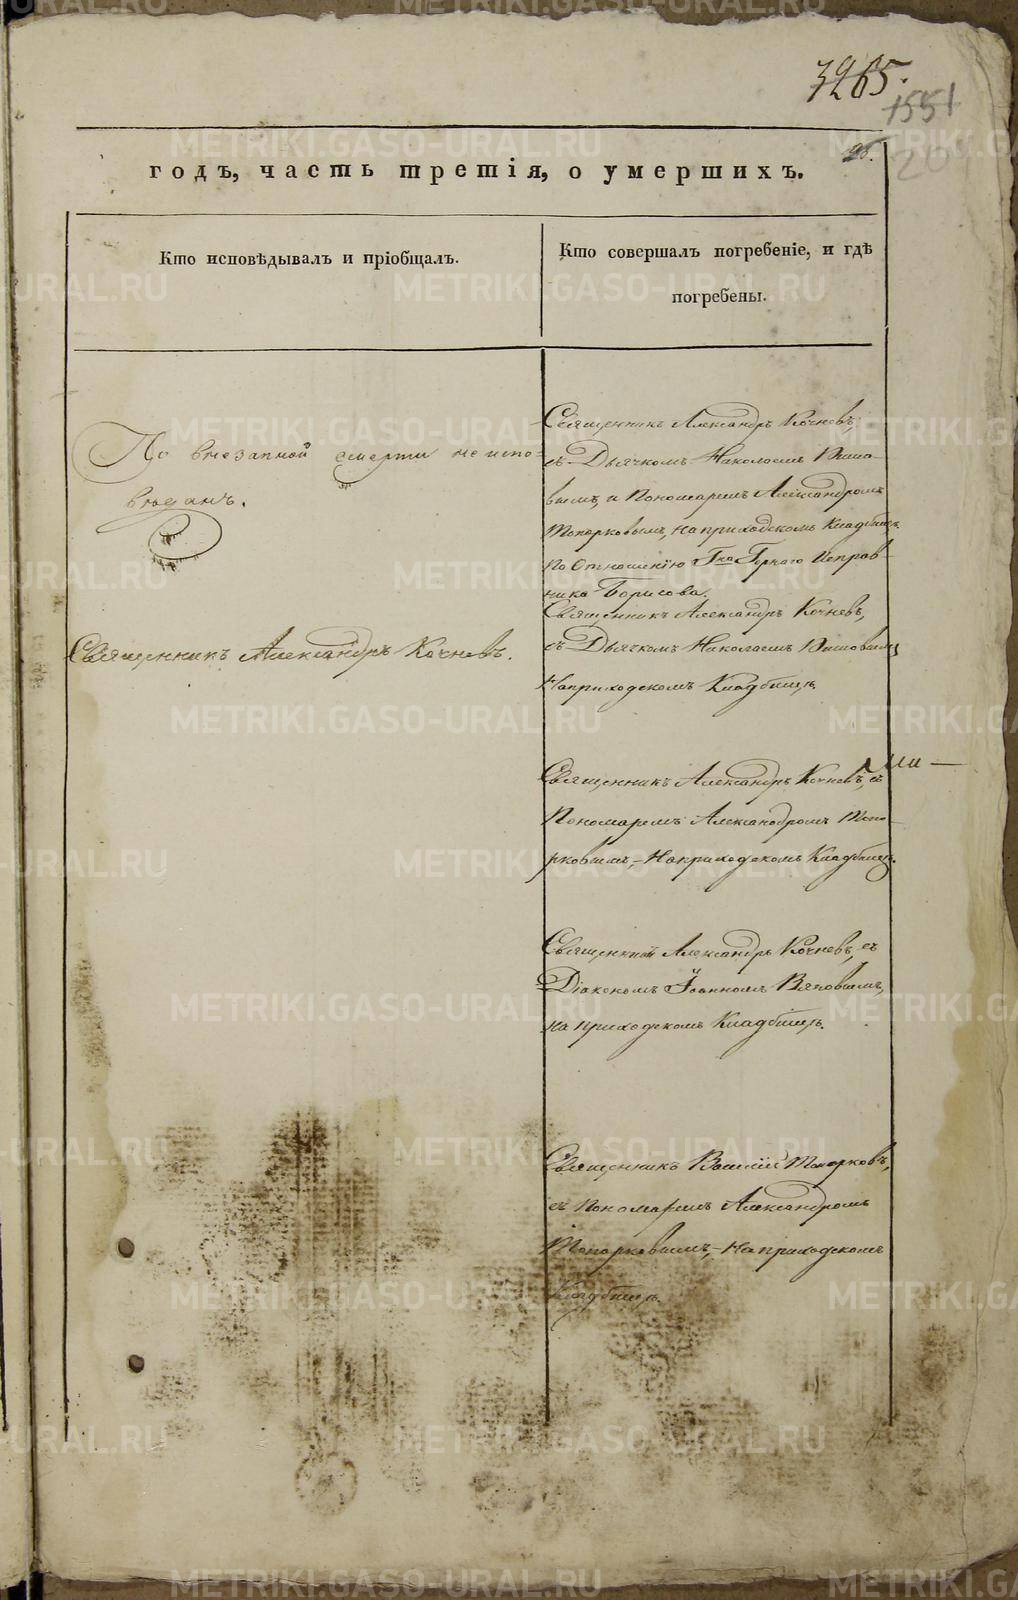 3265.
1551
годъ, часть третія, о умершихъ.
Кто исповѣдывалъ и пріобщалъ.
Кто совершалъ погребеніе, и гдѣ
погребены.
По внезапной смерти не испо-
вѣданъ.
Священникъ Александръ Кочневъ,
съ Дьячкомъ Николаемъ
и Пономаремъ Александромъ
Топорковымъ, на приходскомъ Кладбищѣ.
по Отношенію Исправ-
ника Борисова.
Священникъ Александръ Кочневъ.
Священникъ Александръ Кочневъ,
съ Дьячкомъ Николаемъ
на приходскомъ Кладбищѣ.
Священникъ Александръ Кочневъ, съ
Пономаремъ Александромъ Топо-
рковымъ, на приходскомъ Кладбищѣ.
Священникъ Александръ Кочневъ, съ
Діакономъ Іоанномъ
на приходскомъ Кладбищѣ.
Священникъ Василій Топорковъ,
съ Пономаремъ Александромъ
Топорковымъ, на приходскомъ
Кладбищѣ.
METRIKI.GASO-URAL.RU